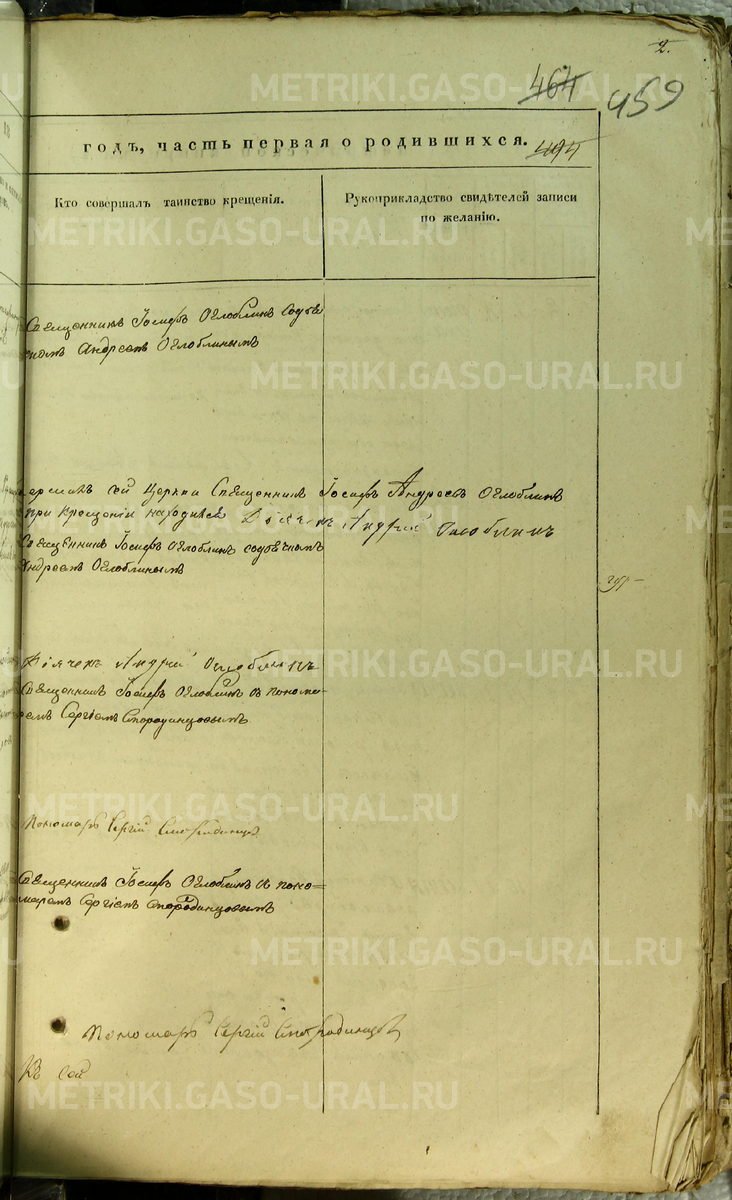 2.
464
459
годъ, часть первая о родившихся.
494
Кто совершалъ таинство крещенія.
Рукоприкладство свидѣтелей записи
по желанію.
Священникъ Іосифъ Оглоблинъ
Андреемъ Оглоблинымъ
сей Церкви Священникъ Іосифъ Андреевъ Оглоблинъ
при крещеніи находился Дьячекъ Андрей Оглоблинъ
Священникъ Іосифъ Оглоблинъ содьячкомъ
Андреемъ Оглоблинымъ
Дьячекъ Андрей Оглоблинъ
Священникъ Іосифъ Оглоблинъ съ понома-
ремъ Сергіемъ Смородинцовымъ
Пономарь Сергій Смородинцовъ
Священникъ Іосифъ Оглоблинъ съ поно=
маремъ Сергіемъ Смородинцовымъ
Пономарь Сергій Смородинцовъ
Къ сей
METRIKI.GASO-URAL.RU